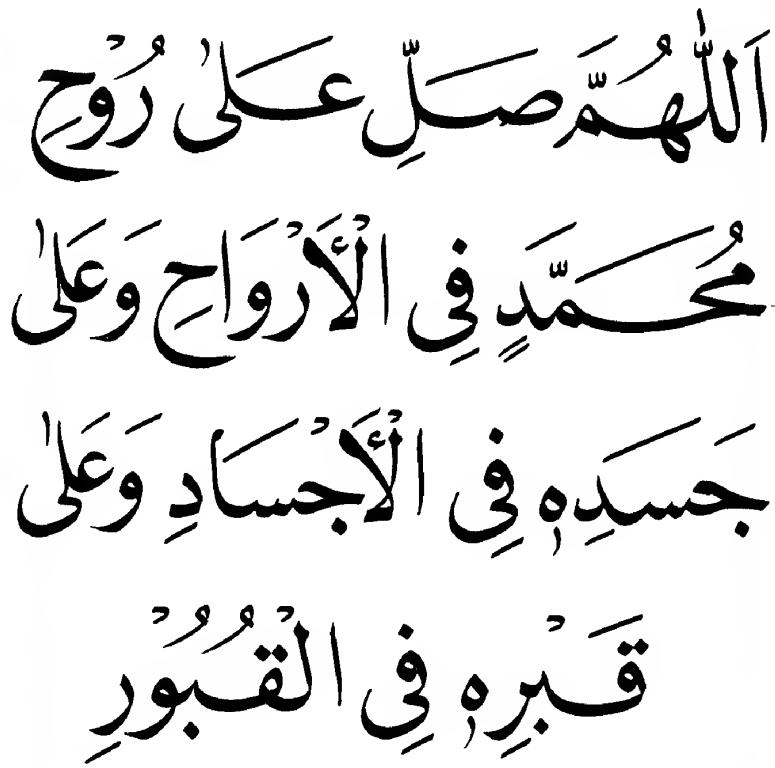 اَللّٰهُمَّ صَلِّ عَلٰى رُوْحِ
مُحَمَّدٍ فِي الْأَرْوَاحِ وَعَلٰى
جَسَدِهٖ فِي الْأَجْسَادِ وَعَلٰى
قَبْرِهٖ فِي الْقُبُوْرِ